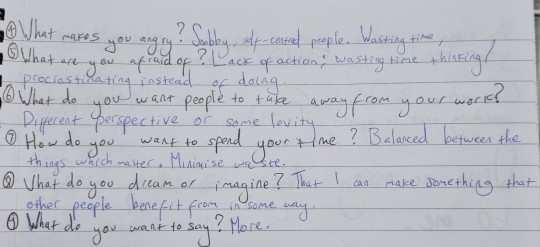 ④ What makes you angry? Snobby, self-centred people. Wasting time,
⑤ What are you afraid of? Lack of action; wasting time thinking/
procrastinating instead of doing.
⑥ What do you want people to take away from your work?
Different perspective or some levity
⑦ How do you want to spend your time? Balanced between the
things which matter. Minimise waste.
⑧ What do you dream or imagine? That I can make something that
other people benefit from in some way.
⑨ What do you want to say? More.